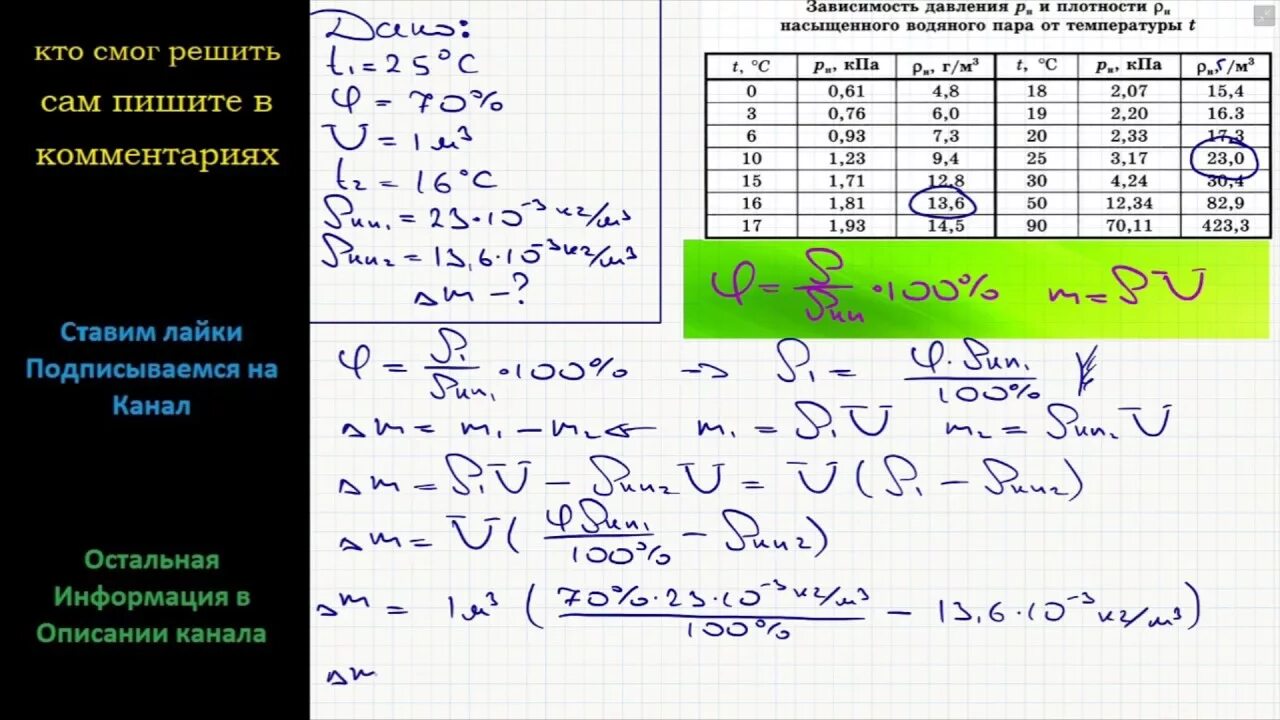 кто смог решить
сам пишите в
комментариях
Ставим лайки
Подписываемся на
Канал
Остальная
Информация в
Описании канала
Дано:
t₁ = 25°C
φ = 70%
V = 1 м³
t₂ = 16°C
ρнп₁ = 23·10⁻³ кг/м³
ρнп₂ = 13,6·10⁻³ кг/м³
Δm – ?
Зависимость давления pн и плотности ρн
насыщенного водяного пара от температуры t
t, °C pн, кПа ρн, г/м³ t, °C pн, кПа ρн, г/м³
0 0,61 4,8 18 2,07 15,4
3 0,76 6,0 19 2,20 16.3
6 0,93 7,3 20 2,33 17,3
10 1,23 9,4 25 3,17 23,0
15 1,71 12,8 30 4,24 30,4
16 1,81 13,6 50 12,34 82,9
17 1,93 14,5 90 70,11 423,3
φ = ρ/ρнп · 100% m = ρV
φ = ρ₁/ρнп₁ · 100% → ρ₁ = φ·ρнп₁/100%
Δm = m₁ – m₂ ← m₁ = ρ₁V m₂ = ρнп₂V
Δm = ρ₁V – ρнп₂V = V(ρ₁ – ρнп₂)
Δm = V(φρнп₁/100% – ρнп₂)
Δm = 1м³ (70%·23·10⁻³ кг/м³/100% – 13,6·10⁻³ кг/м³)
Δm